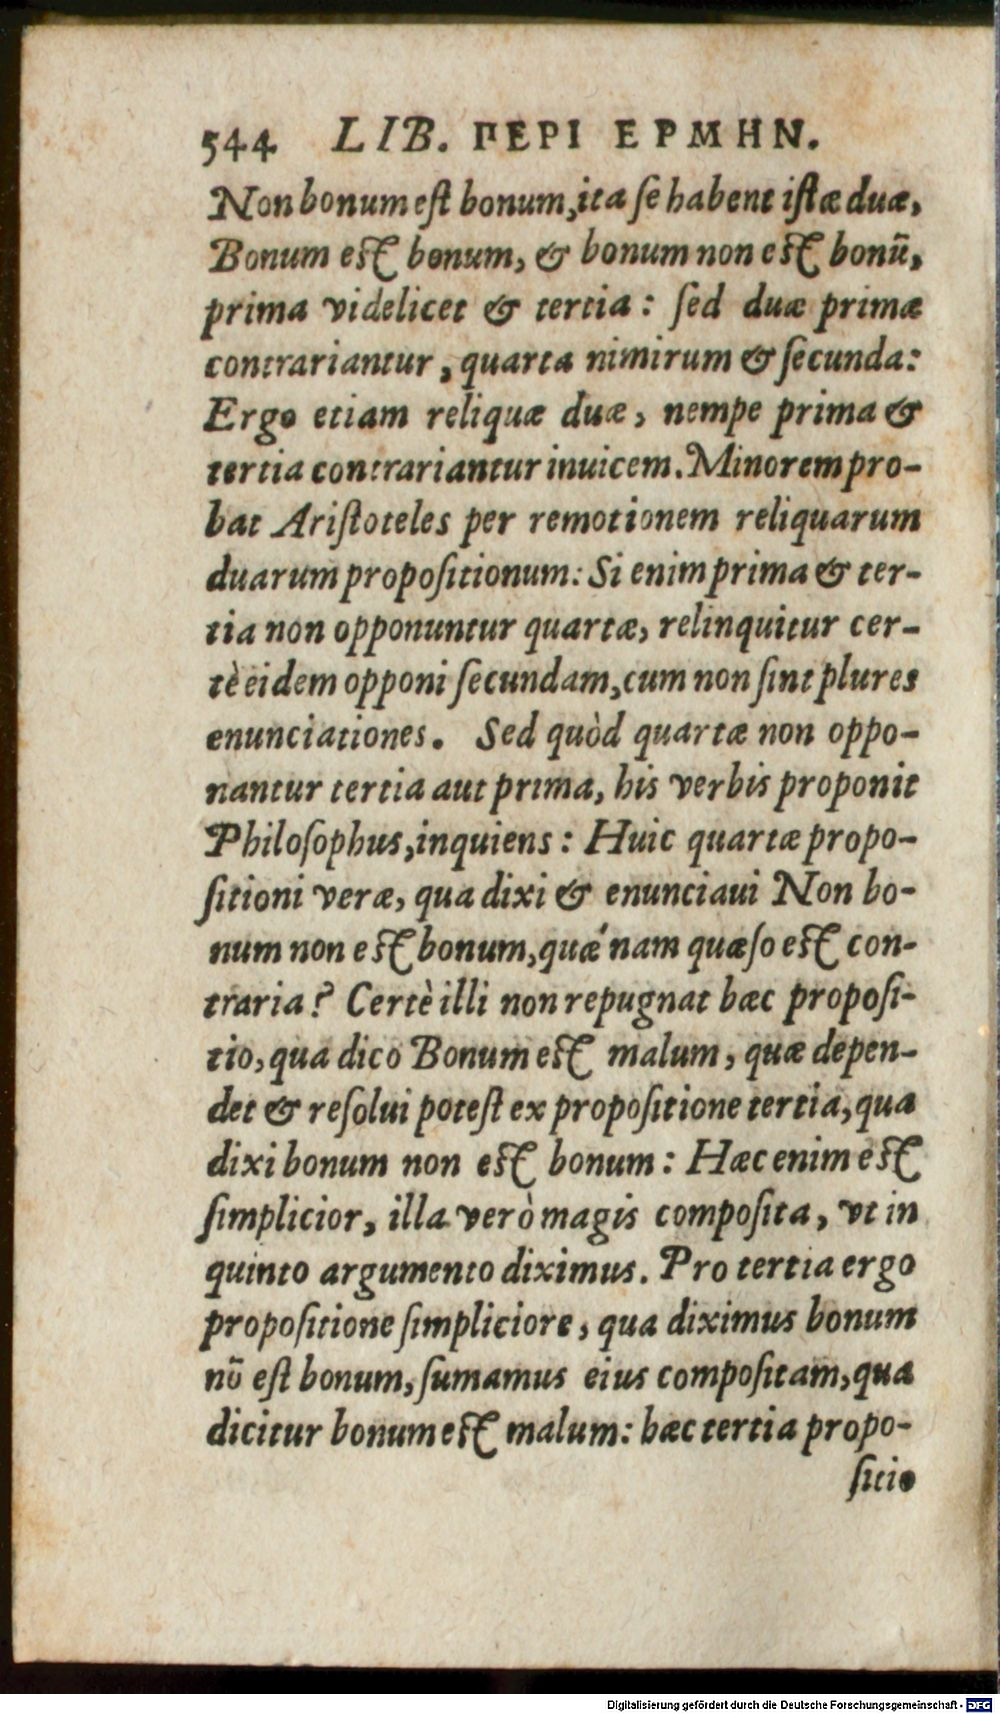 544 LIB. ΠΕΡΙ ΕΡΜΗΝ.
Non bonum est bonum, ita se habent istæ duæ,
Bonum est bonum, & bonum non est bonū,
prima videlicet & tertia: sed duæ primæ
contrariantur, quarta nimirum & secunda:
Ergo etiam reliquæ duæ, nempe prima &
tertia contrariantur inuicem. Minorem pro-
bat Aristoteles per remotionem reliquarum
duarum propositionum: Si enim prima & ter-
tia non opponuntur quartæ, relinquitur cer-
tè eidem opponi secundam, cum non sint plures
enunciationes. Sed quòd quartæ non oppo-
nantur tertia aut prima, his verbis proponit
Philosophus, inquiens: Huic quartæ propo-
sitioni veræ, qua dixi & enunciaui Non bo-
num non est bonum, quǽ nam quæso est con-
traria? Certè illi non repugnat hæc proposi-
tio, qua dico Bonum est malum, quæ depen-
det & resolui potest ex propositione tertia, qua
dixi bonum non est bonum: Hæc enim est
simplicior, illa verò magis composita, vt in
quinto argumento diximus. Pro tertia ergo
propositione simpliciore, qua diximus bonum
nō est bonum, sumamus eius compositam, qua
dicitur bonum est malum: hæc tertia propo-
sitio
Digitalisierung gefördert durch die Deutsche Forschungsgemeinschaft - DFG